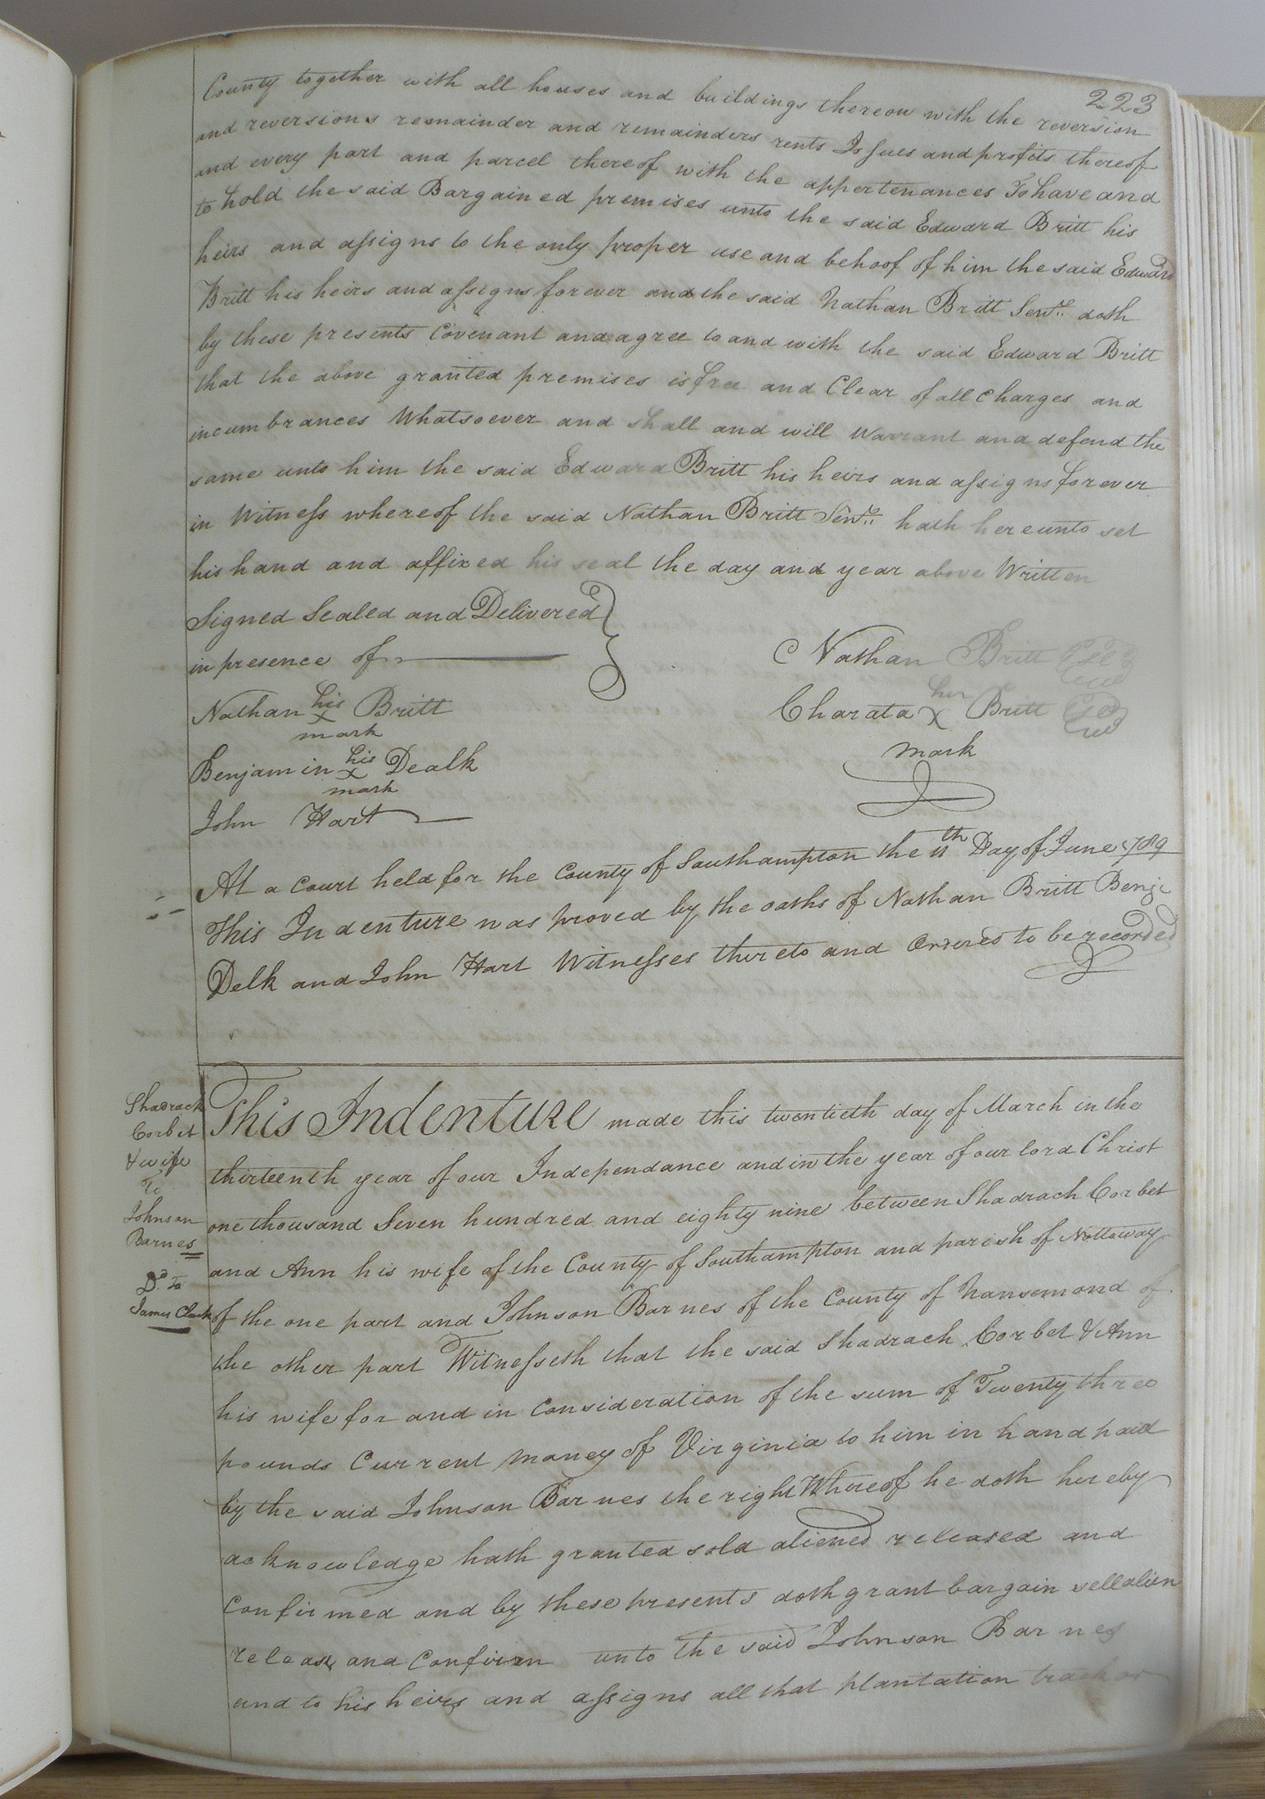 223
County together with all houses and buildings thereon with the reversion
and reversions remainder and remainders rents Issues and profits thereof
and every part and parcel thereof with the appertenances To have and
to hold the said Bargained premises unto the said Edward Britt his
heirs and assigns to the only proper use and behoof of him the said Edward
Britt his heirs and assigns forever and the said Nathan Britt Senr. doth
by these presents Covenant and agree to and with the said Edward Britt
that the above granted premises is free and Clear of all Charges and
incumbrances Whatsoever and shall and will Warrant and defend the
same unto him the said Edward Britt his heirs and assigns forever
in Witness whereof the said Nathan Britt Senr. hath hereunto set
his hand and affixed his seal the day and year above Written
Signed Sealed and Delivered
in presence of
Nathan Britt Seal
Nathan his x mark Britt
Charata her x mark Britt Seal
Benjamin his x mark Dealk
John Hart
At a Court held for the County of Southampton the 11th Day of June 1789
This Indenture was proved by the oaths of Nathan Britt Benj
Delk and John Hart Witnesses thereto and Ordered to be recorded
Shadrack
Corbit
& wife
To
Johnson
Barnes
Dd. to
James Clark
This Indenture made this twentieth day of March in the
thirteenth year of our Independance and in the year of our lord Christ
one thousand Seven hundred and eighty nine between Shadrach Corbet
and Ann his wife of the County of Southampton and parish of Nottoway
of the one part and Johnson Barnes of the County of Nansemond of
the other part Witnesseth that the said Shadrach Corbet & Ann
his wife for and in Consideration of the sum of Twenty three
pounds Current money of Virginia to him in hand paid
by the said Johnson Barnes the right Whereof he doth hereby
acknowledge hath granted sold aliened released and
Confirmed and by these presents doth grant bargain sell alien
release and Confirm unto the said Johnson Barnes
and to his heirs and assigns all that plantation track or